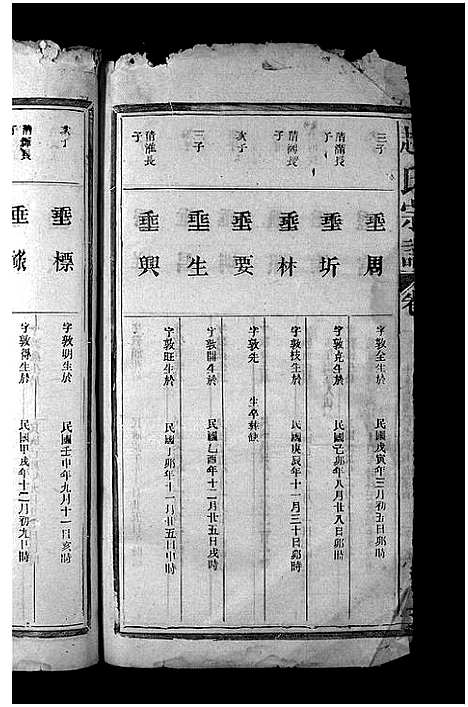 趙氏宗譜
卷
三子
垂周
字敦全生於 民國戊寅年三月初五日卯時
清滿長子
垂圻
字敦克生於 民國己卯年八月廿八日卯時
清樹長子
垂林
字敦枝生於 民國庚辰年十一月三十日卯時
次子
垂要
字敦先 生卒葬缺
三子
垂生
字敦開生於 民國乙酉年十二月廿五日戌時
清淮長子
垂興
字敦旺生於 民國丁卯年十一月廿五日申時
次子
垂標
字敦明生於 民國壬申年九月十一日亥時
長子
垂
字敦得生於 民國甲戌年十二月初九日時